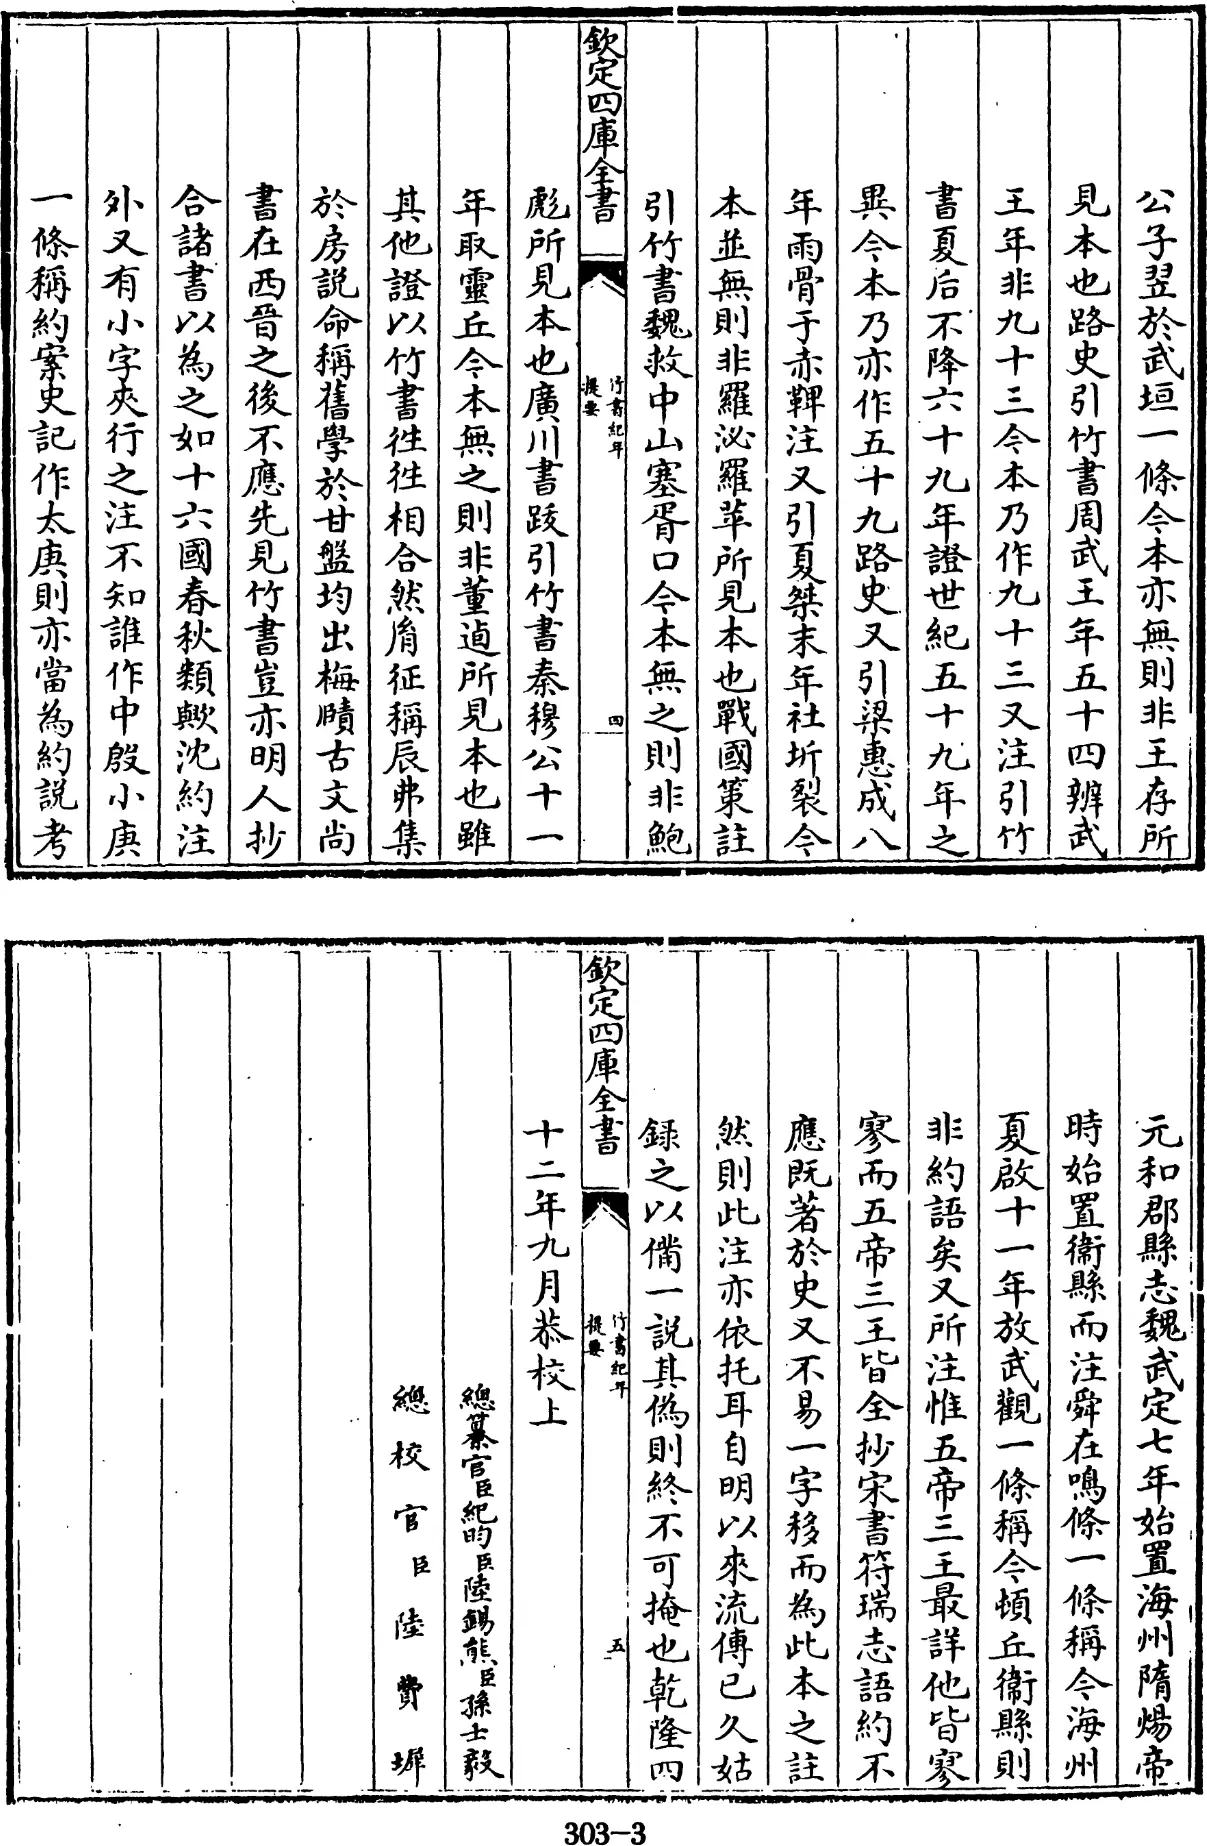 公子翌於武垣一條今本亦無則非王存所
見本也路史引竹書周武王年五十四辨武
王年非九十三今本乃作九十三又注引竹
書夏后不降六十九年證世紀五十九年之
異今本乃亦作五十九路史又引梁惠成八
年雨骨于赤鞞注又引夏桀末年社坼裂今
本並無則非羅泌羅苹所見本也戰國策註
引竹書魏救中山塞胥口今本無之則非鮑
欽定四庫全書
竹書紀年
提要
四
彪所見本也廣川書跋引竹書秦穆公十一
年取靈丘今本無之則非董逌所見本也雖
其他證以竹書徃徃相合然胤征稱辰弗集
於房說命稱舊學於甘盤均出梅賾古文尚
書在西晉之後不應先見竹書豈亦明人抄
合諸書以為之如十六國春秋類歟沈約注
外又有小字夾行之注不知誰作中殷小庚
一條稱約案史記作太庚則亦當為約說考
元和郡縣志魏武定七年始置海州隋煬帝
時始置衞縣而注舜在鳴條一條稱今海州
夏啟十一年放武觀一條稱今頓丘衞縣則
非約語矣又所注惟五帝三王最詳他皆寥
寥而五帝三王皆全抄宋書符瑞志語約不
應既著於史又不易一字移而為此本之註
然則此注亦依托耳自明以來流傳已久姑
錄之以備一說其偽則終不可掩也乾隆四
欽定四庫全書
竹書紀年
提要
五
十二年九月恭校上
總纂官臣紀昀臣陸錫熊臣孫士毅
總校官臣陸費墀
303-3